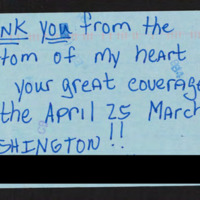 NK YOU from the
tom of my heart
your great coverage
the APRIL 25 March
SHINGTON!!